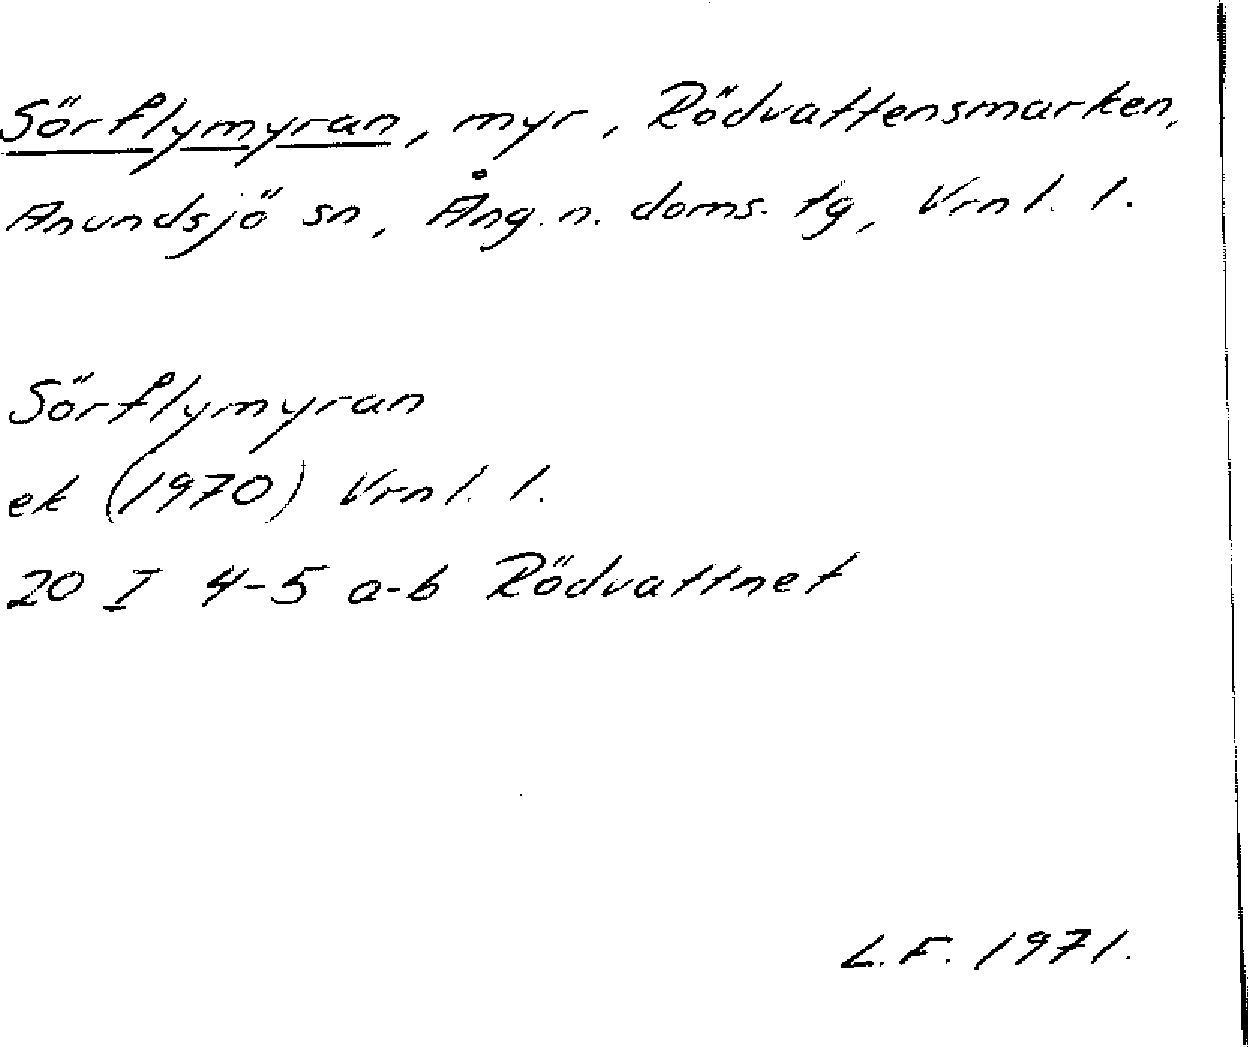 Sörflymyran, myr, Rödvattensmarken,
Anundsjö sn, Ång. n. doms. tg, Vrnl. l.
Sörflymyran
ek (1970) Vrnl. l.
20 I 4-5 a-b Rödvattnet
L.F. 1971.